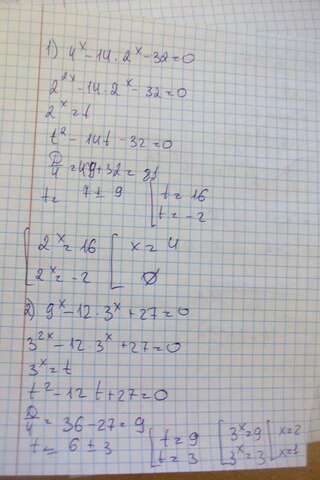 1) 4^x - 14 · 2^x - 32 = 0
2^2x - 14 · 2^x - 32 = 0
2^x = t
t^2 - 14t - 32 = 0
D/4 = 49 + 32 = 81
t = 7 ± 9 [ t = 16
t = -2
[ 2^x = 16 [ x = 4
2^x = -2 ∅
2) 9^x - 12 · 3^x + 27 = 0
3^2x - 12 3^x + 27 = 0
3^x = t
t^2 - 12t + 27 = 0
D/4 = 36 - 27 = 9
t = 6 ± 3 [ t = 9 [ 3^x = 9 [ x = 2
t = 3 3^x = 3 x = 1